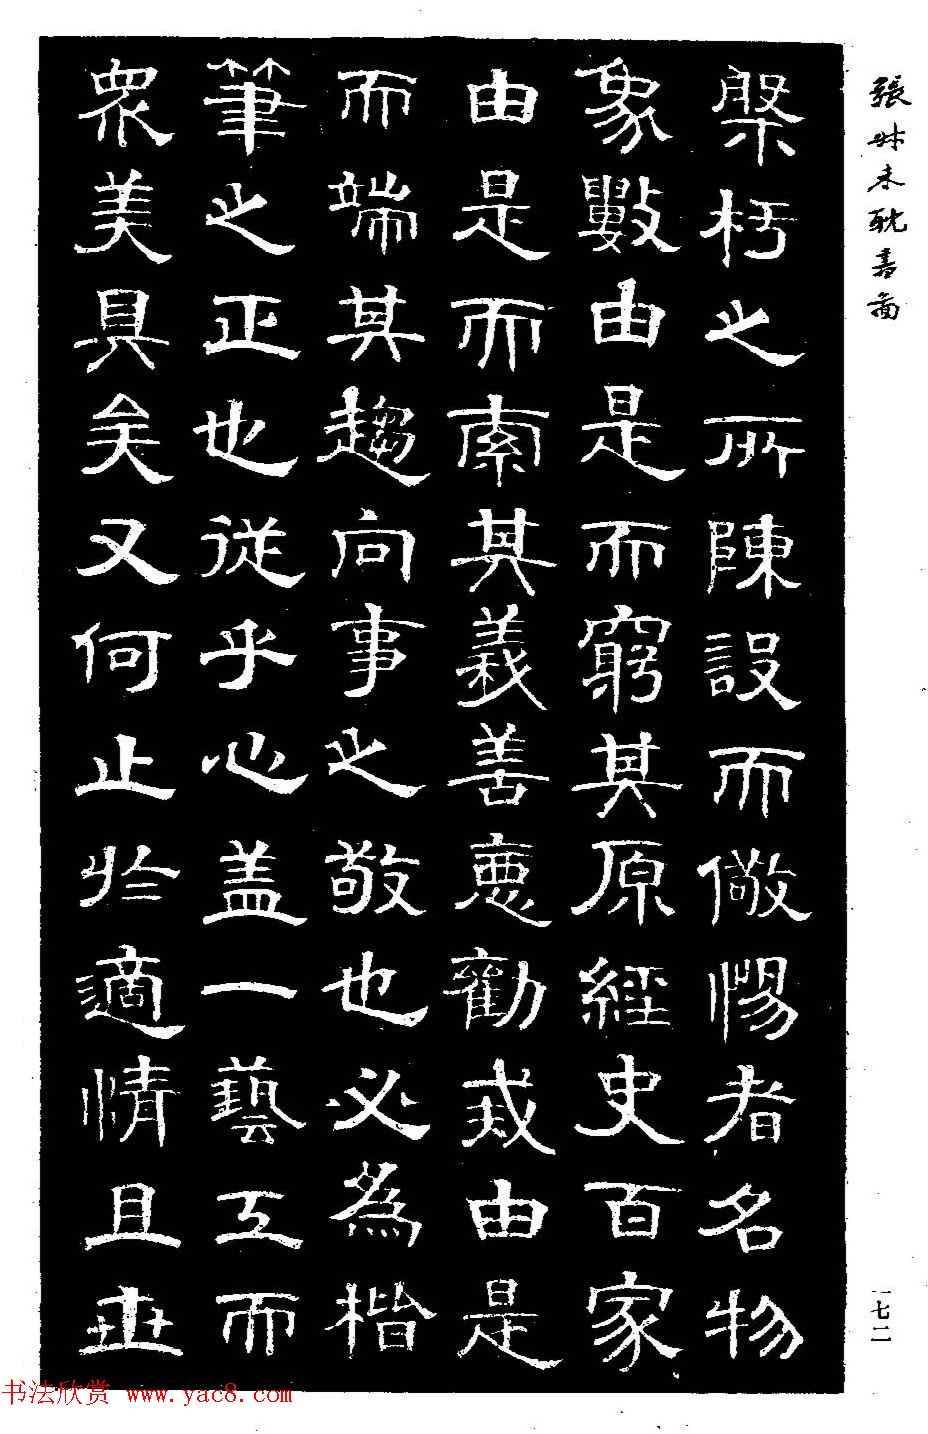 張叔未耽書圖
槃杅之所陳設而儆惕者名物
象數由是而窮其原經史百家
由是而索其義善惡勸戒由是
而端其趨向事之敬也必為楷
筆之正也從乎心蓋一藝工而
眾美具矣又何止於適情且
一七二
书法欣赏 www.yac8.com